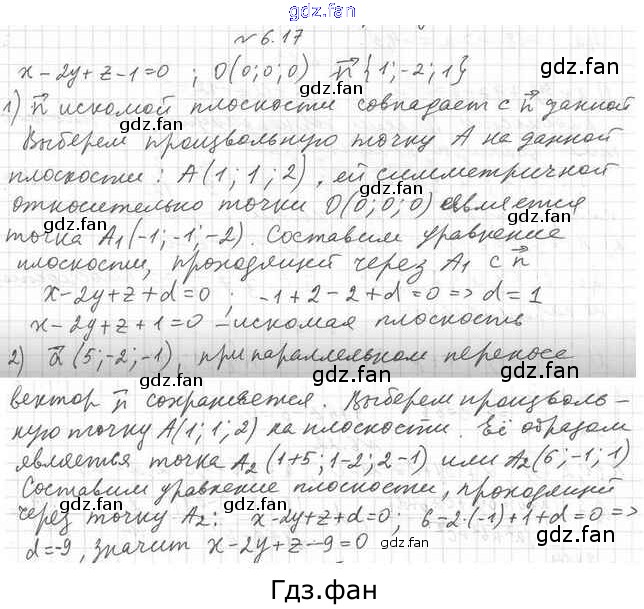 gdz.fan
№ 6.17
x-2y+z-1=0 ; O(0;0;0) n⃗{1;-2;1} gdz.fan
1) n⃗ искомой плоскости совпадает с n⃗ данной
gdz.fan gdz.fan
Выберем произвольную точку A на данной
плоскости: A(1;1;2), ей симметричной
относительно точки O(0;0;0) является
gdz.fan gdz.fan
точка A₁(-1;-1;-2). Составим уравнение
плоскости, проходящей через A₁ с n⃗
x-2y+z+d=0 ; -1+2-2+d=0 => d=1
gdz.fan gdz.fan
x-2y+z+1=0 - искомая плоскость
2) a⃗(5;-2;-1), при параллельном переносе
gdz.fan gdz.fan
вектор n⃗ сохраняется. Выберем произволь-
ную точку A(1;1;2) на плоскости. Её образом
gdz.fan gdz.fan
является точка A₂(1+5;1-2;2-1) или A₂(6;-1;1)
Составим уравнение плоскости, проходящей
gdz.fan gdz.fan
через точку A₂: x-2y+z+d=0, 6-2·(-1)+1+d=0 =>
d=-9, значит x-2y+z-9=0 gdz.fan
Гдз.фан